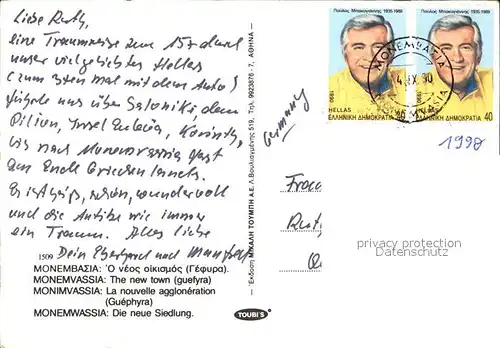 Liebe Ruth,
eine Traumreise zum 15x durch
unser vielgeliebtes Hellas
(zum ersten mal mit dem Auto)
führte uns über Saloniki, dem
Pilion, Insel Euböa, Korinth,
bis nach Monemvassia fast
am Ende Griechenlands.
Es ist heiß, schön, wundervoll
und die Antike wie immer
ein Traum. Alles liebe
Dein Eberhard und
1509
ΜΟΝΕΜΒΑΣΙΑ: Ὁ νέος οἰκισμός (Γέφυρα).
MONEMVASSIA: The new town (guefyra)
MONIMVASSIA: La nouvelle agglonération
(Guéphyra)
MONEMWASSIA: Die neue Siedlung.
Ἔκδοση ΜΙΧΑΛΗ ΤΟΥΜΠΗ Α.Ε. Λ. Βουλιαγμένης 519, Τηλ. 9923876 - 7, ΑΘΗΝΑ
TOUBI'S
Germany
Παύλος Μπακογιάννης 1935-1989
1990
HELLAS
ΕΛΛΗΝΙΚΗ ΔΗΜΟΚΡΑΤΙΑ 40
Παύλος Μπακογιάννης 1935-1989
1990
HELLAS
ΕΛΛΗΝΙΚΗ ΔΗΜΟΚΡΑΤΙΑ 40
ΜΟΝΕΜΒΑΣΙΑ
IX 90
1990
privacy protection
Datenschutz